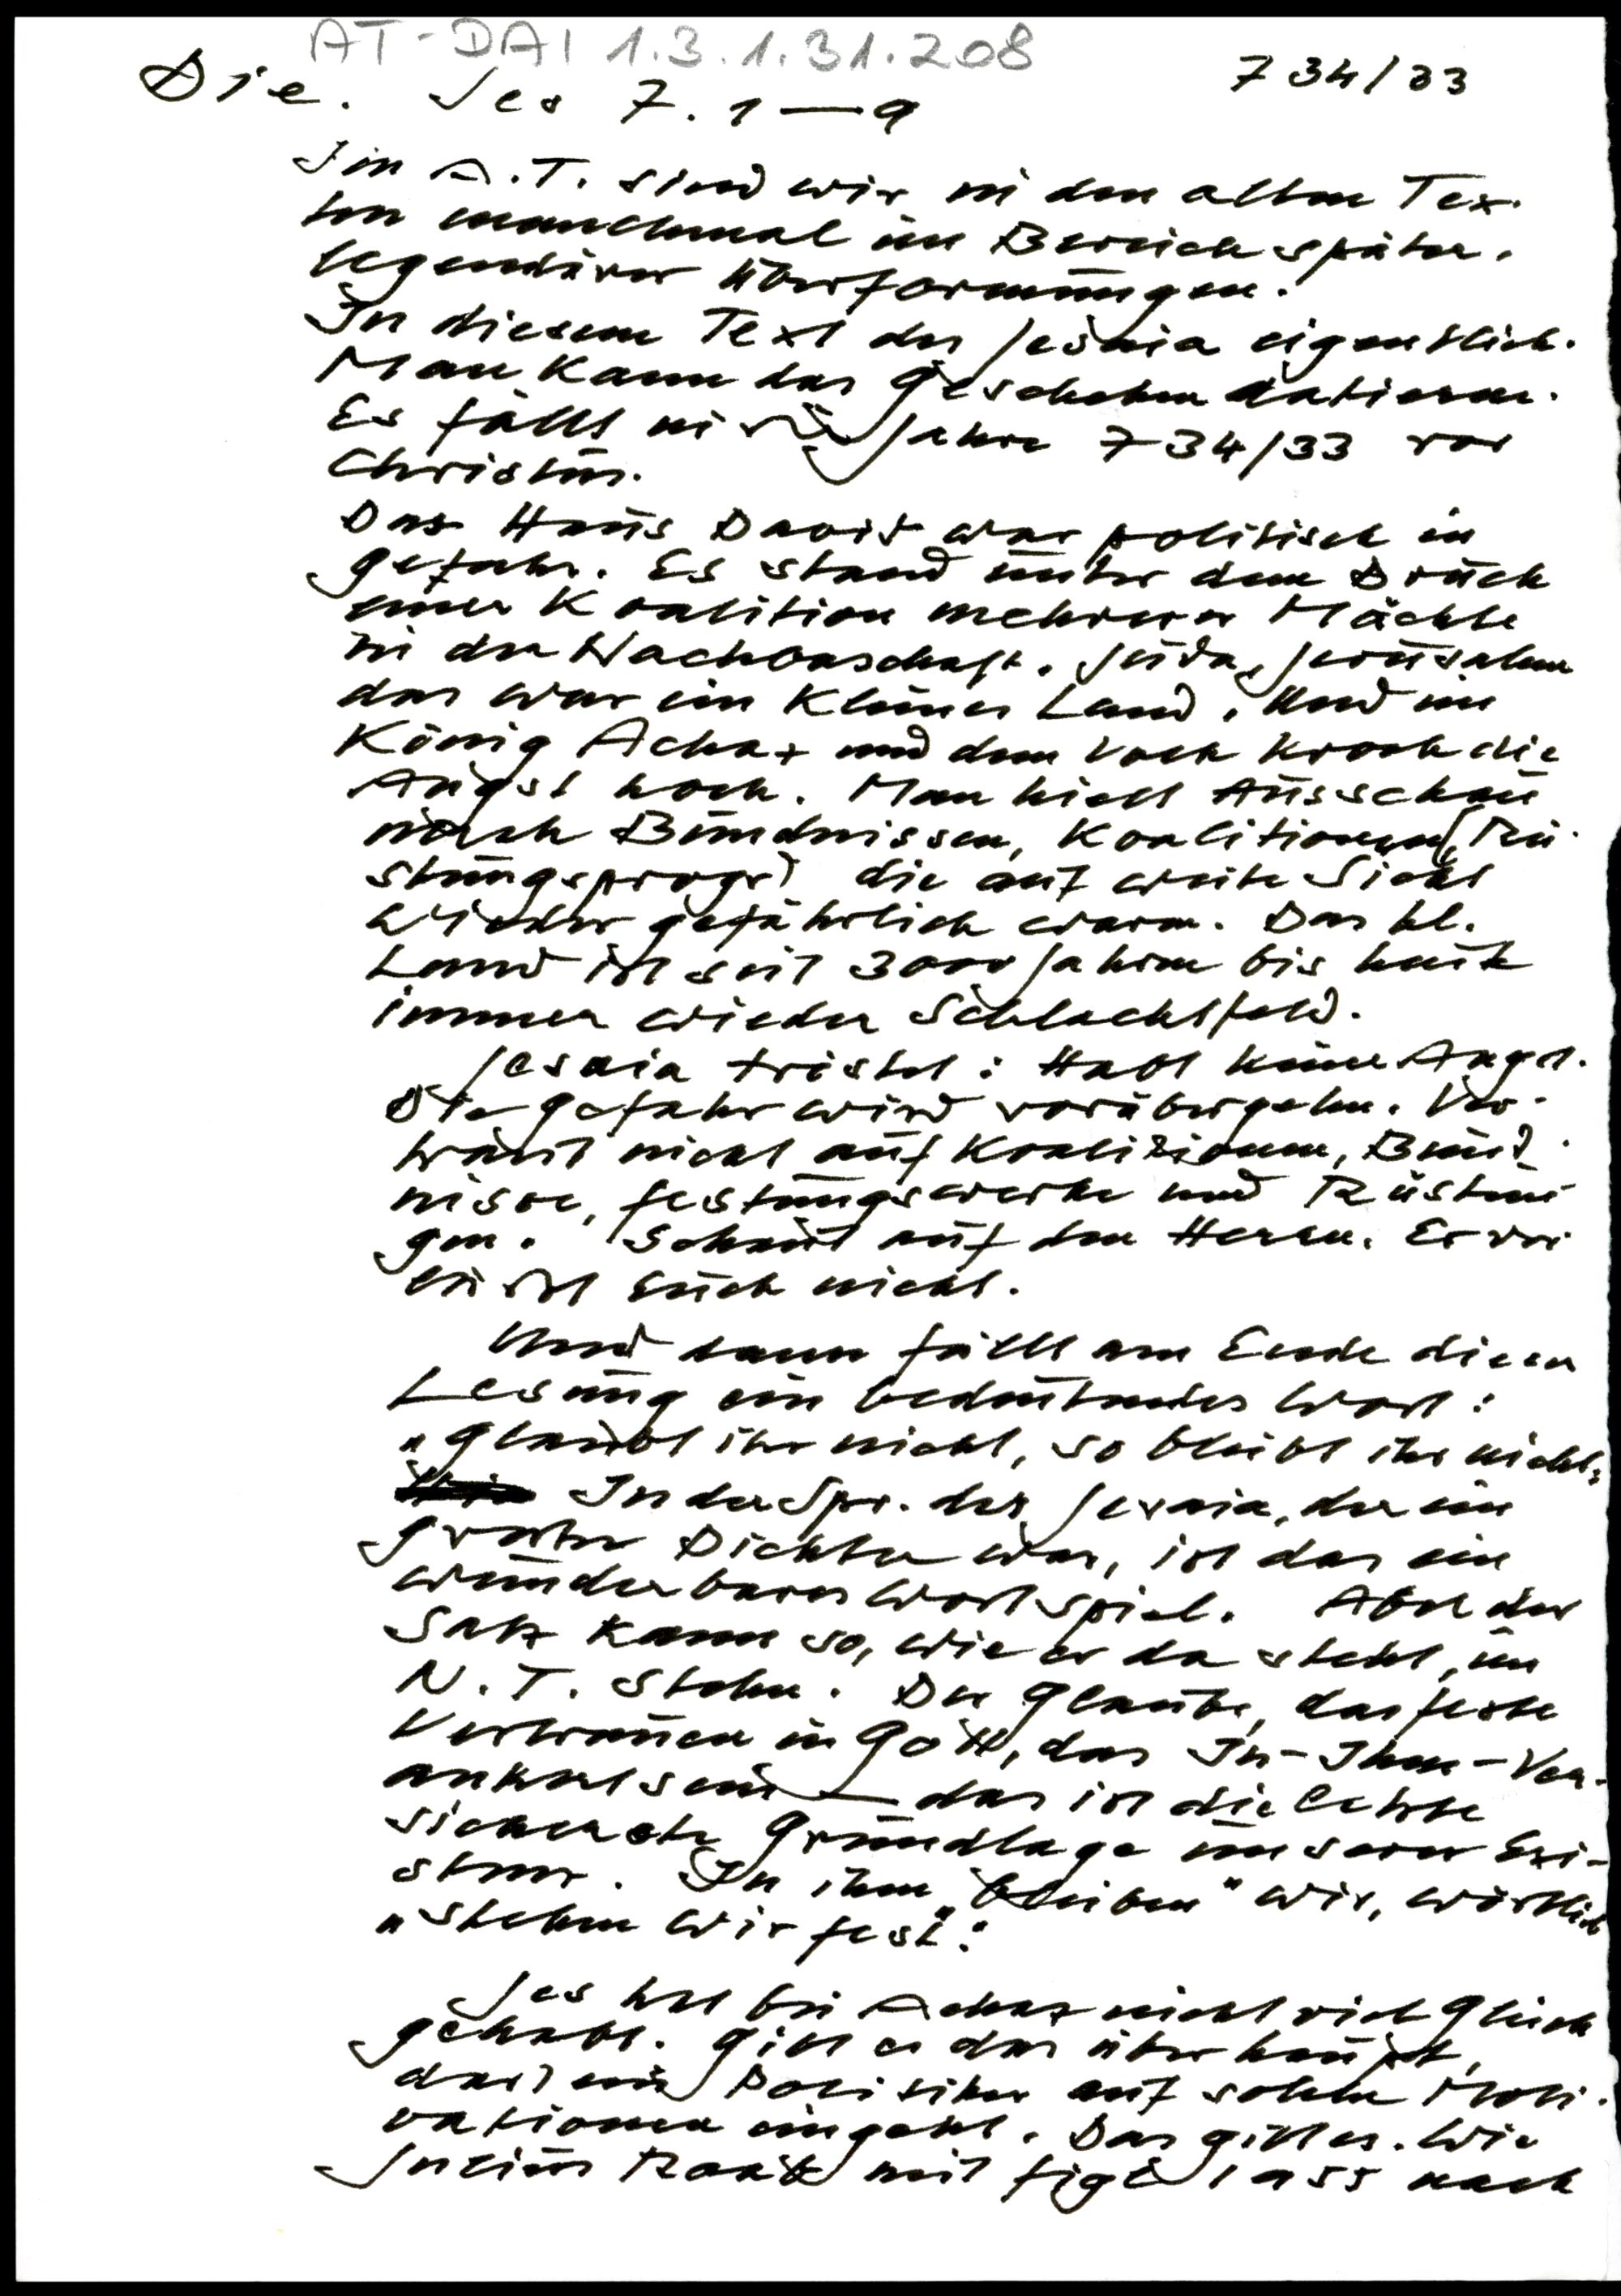 AT-DAI 1.3.1.31.208
734/33
Die. Jes 7. 1—9
Im A.T. sind wir in den alten Tex-
ten manchmal im Bereich später,
legendärer Überformungen.
In diesem Text des Jesaia eigentlich.
Man kann das Geschehen datieren.
Es fällt in Jahre 734/33 vor
Christus.
Das Haus David war politisch in
Gefahr. Es stand unter dem Druck
einer Koalition mehrerer Mächte
in der Nachbarschaft. Juda, Jerusalem
das war ein kleines Land. Und im
König Achaz und dem Volk kroch die
Angst hoch. Man hielt Ausschau
nach Bündnissen, Koalitionen (Rü-
stungsprogr) die auf weite Sicht
wieder gefährlich waren. Das hl.
Land ist seit 3000 Jahren bis heute
immer wieder Schlachtfeld.
Jesaia tröstet: Habt keine Angst.
Die Gefahr wird vorübergehn. Ver-
traut nicht auf Koalitionen, Bünd-
nisse, Festungswerke und Rüstun-
gen. Schaut auf den Herrn. Er ver-
läßt Euch nicht.
Und dann fällt am Ende dieser
Lesung ein bedeutendes Wort:
"Glaubt ihr nicht, so bleibt ihr nicht"
In der Spr. des Jesaia, der ein
großer Dichter war, ist das ein
wunderbares Wortspiel. Aber der
Satz kann so, wie er da steht, im
N.T. stehn. Der Glaube, das feste
Vertrauen in Gott, das In-Ihm-Ver-
ankertsein — das ist die letzte
sicherste Grundlage unserer Exi-
stenz. In ihm "bleiben" wir, wörtlich
"stehen wir fest".
Jes hat bei Achaz nicht viel Glück
gehabt. Gibt es das überhaupt,
daß ein Politiker auf solche Moti-
vationen eingeht. Das gibt es. Wie
Julius Raab mit Figl 1955 nach